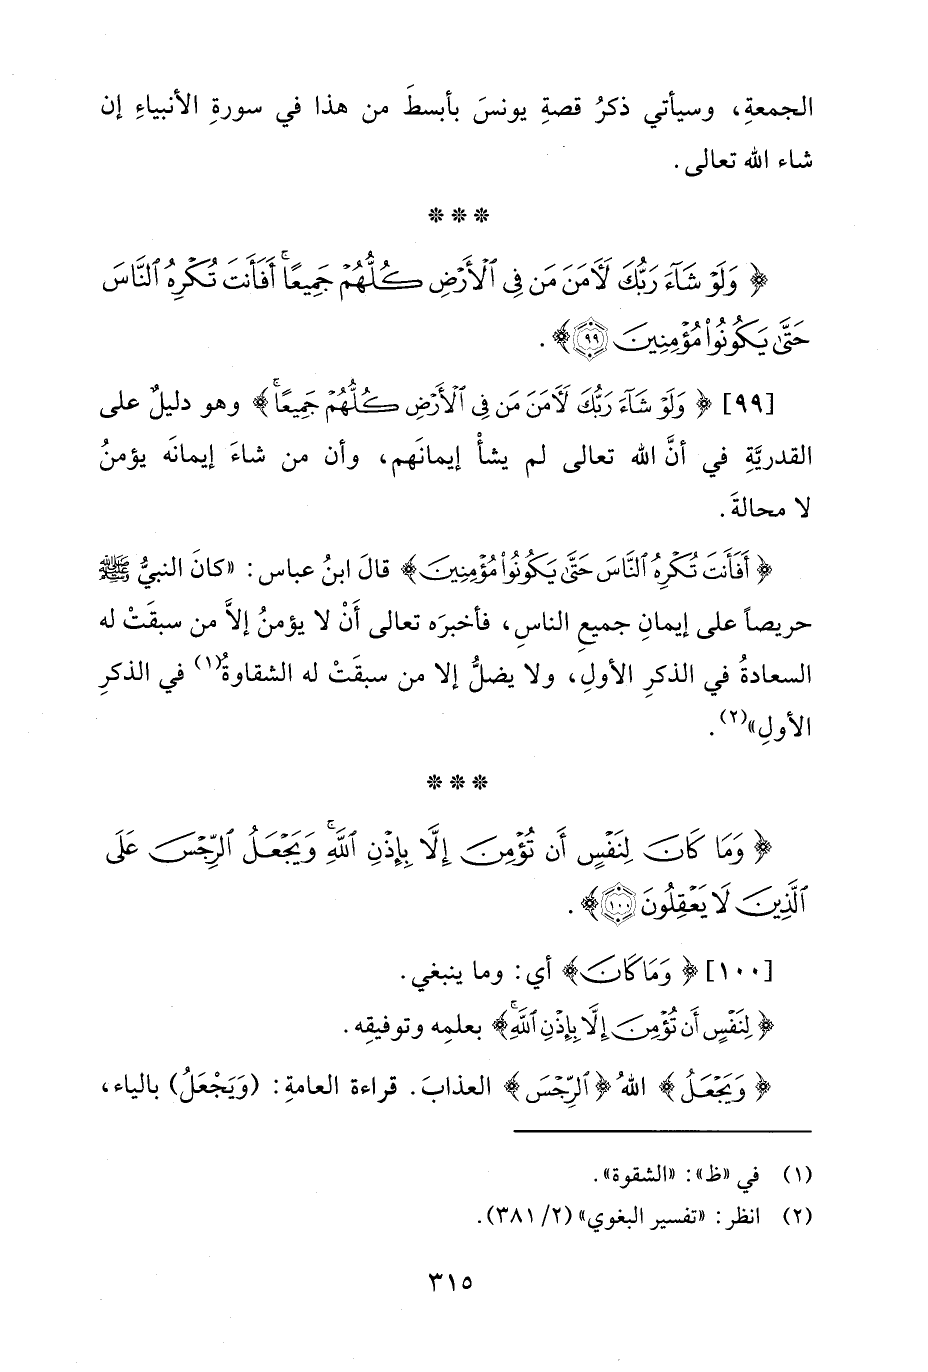 الجمعةِ، وسيأتي ذكرُ قصةِ يونسَ بأبسطَ من هذا في سورةِ الأنبياءِ إن
شاء الله تعالى.
* * *
﴿ وَلَوْ شَآءَ رَبُّكَ لَأٓمَنَ مَن فِى ٱلْأَرْضِ كُلُّهُمْ جَمِيعًا ۚ أَفَأَنتَ تُكْرِهُ ٱلنَّاسَ
حَتَّىٰ يَكُونُوا۟ مُؤْمِنِينَ ﴿٩٩﴾ ﴾.
[٩٩] ﴿ وَلَوْ شَآءَ رَبُّكَ لَأٓمَنَ مَن فِى ٱلْأَرْضِ كُلُّهُمْ جَمِيعًا ۚ ﴾ وهو دليلٌ على
القدريَّةِ في أنَّ الله تعالى لم يشأْ إيمانَهم، وأن من شاءَ إيمانَه يؤمنُ
لا محالةَ.
﴿ أَفَأَنتَ تُكْرِهُ ٱلنَّاسَ حَتَّىٰ يَكُونُوا۟ مُؤْمِنِينَ ﴾ قالَ ابنُ عباس: «كانَ النبيُّ ﷺ
حريصاً على إيمانِ جميعِ الناسِ، فأخبرَه تعالى أَنْ لا يؤمنُ إلاَّ من سبقَتْ له
السعادةُ في الذكرِ الأولِ، ولا يضلُّ إلا من سبقَتْ له الشقاوةُ(١) في الذكرِ
الأولِ»(٢).
* * *
﴿ وَمَا كَانَ لِنَفْسٍ أَن تُؤْمِنَ إِلَّا بِإِذْنِ ٱللَّهِ ۚ وَيَجْعَلُ ٱلرِّجْسَ عَلَى
ٱلَّذِينَ لَا يَعْقِلُونَ ﴿١٠٠﴾ ﴾.
[١٠٠] ﴿ وَمَا كَانَ ﴾ أي: وما ينبغي.
﴿ لِنَفْسٍ أَن تُؤْمِنَ إِلَّا بِإِذْنِ ٱللَّهِ ۚ ﴾ بعلمِه وتوفيقِه.
﴿ وَيَجْعَلُ ﴾ اللهُ ﴿ ٱلرِّجْسَ ﴾ العذابَ. قراءة العامةِ: (وَيَجْعَلُ) بالياء،
(١) في «ظ»: «الشقوة».
(٢) انظر: «تفسير البغوي» (٢/ ٣٨١).
٣١٥